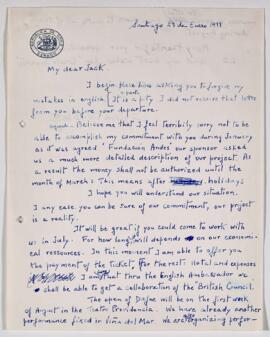 Santiago 29 de Enero 1988
My dear Jack.
I begin here now asking you to forgive my
mistakes in english. It is a pity I did not receive that letter
from you before your departure.
again. Believe me that I feel terribily sorry not to be
able to accomplish my commitment with you during January
as it was agreed. "Fundacion Andes" our sponsor asked
us a much more detailed description of our project. As
a result the money shall not be authorized until the
month of March. This means after holidays
I hope you will understand our situation.
I any case you can be sure of our commitment, our project
is a reality.
It will be great if you could come to work with
us in July. For how long will depends on our economi-
cal ressources. In this moment I am able to offer you
the payment of the ticket. For the rest Hotal and expenses
I am thru the English Ambassador we
shall be able to get a collaboration of the British Council.
The open of will be on the first week
of August in the Teatro Providencia. We have already another
performance fixed in Viña del Mar. We are organizing perfor-